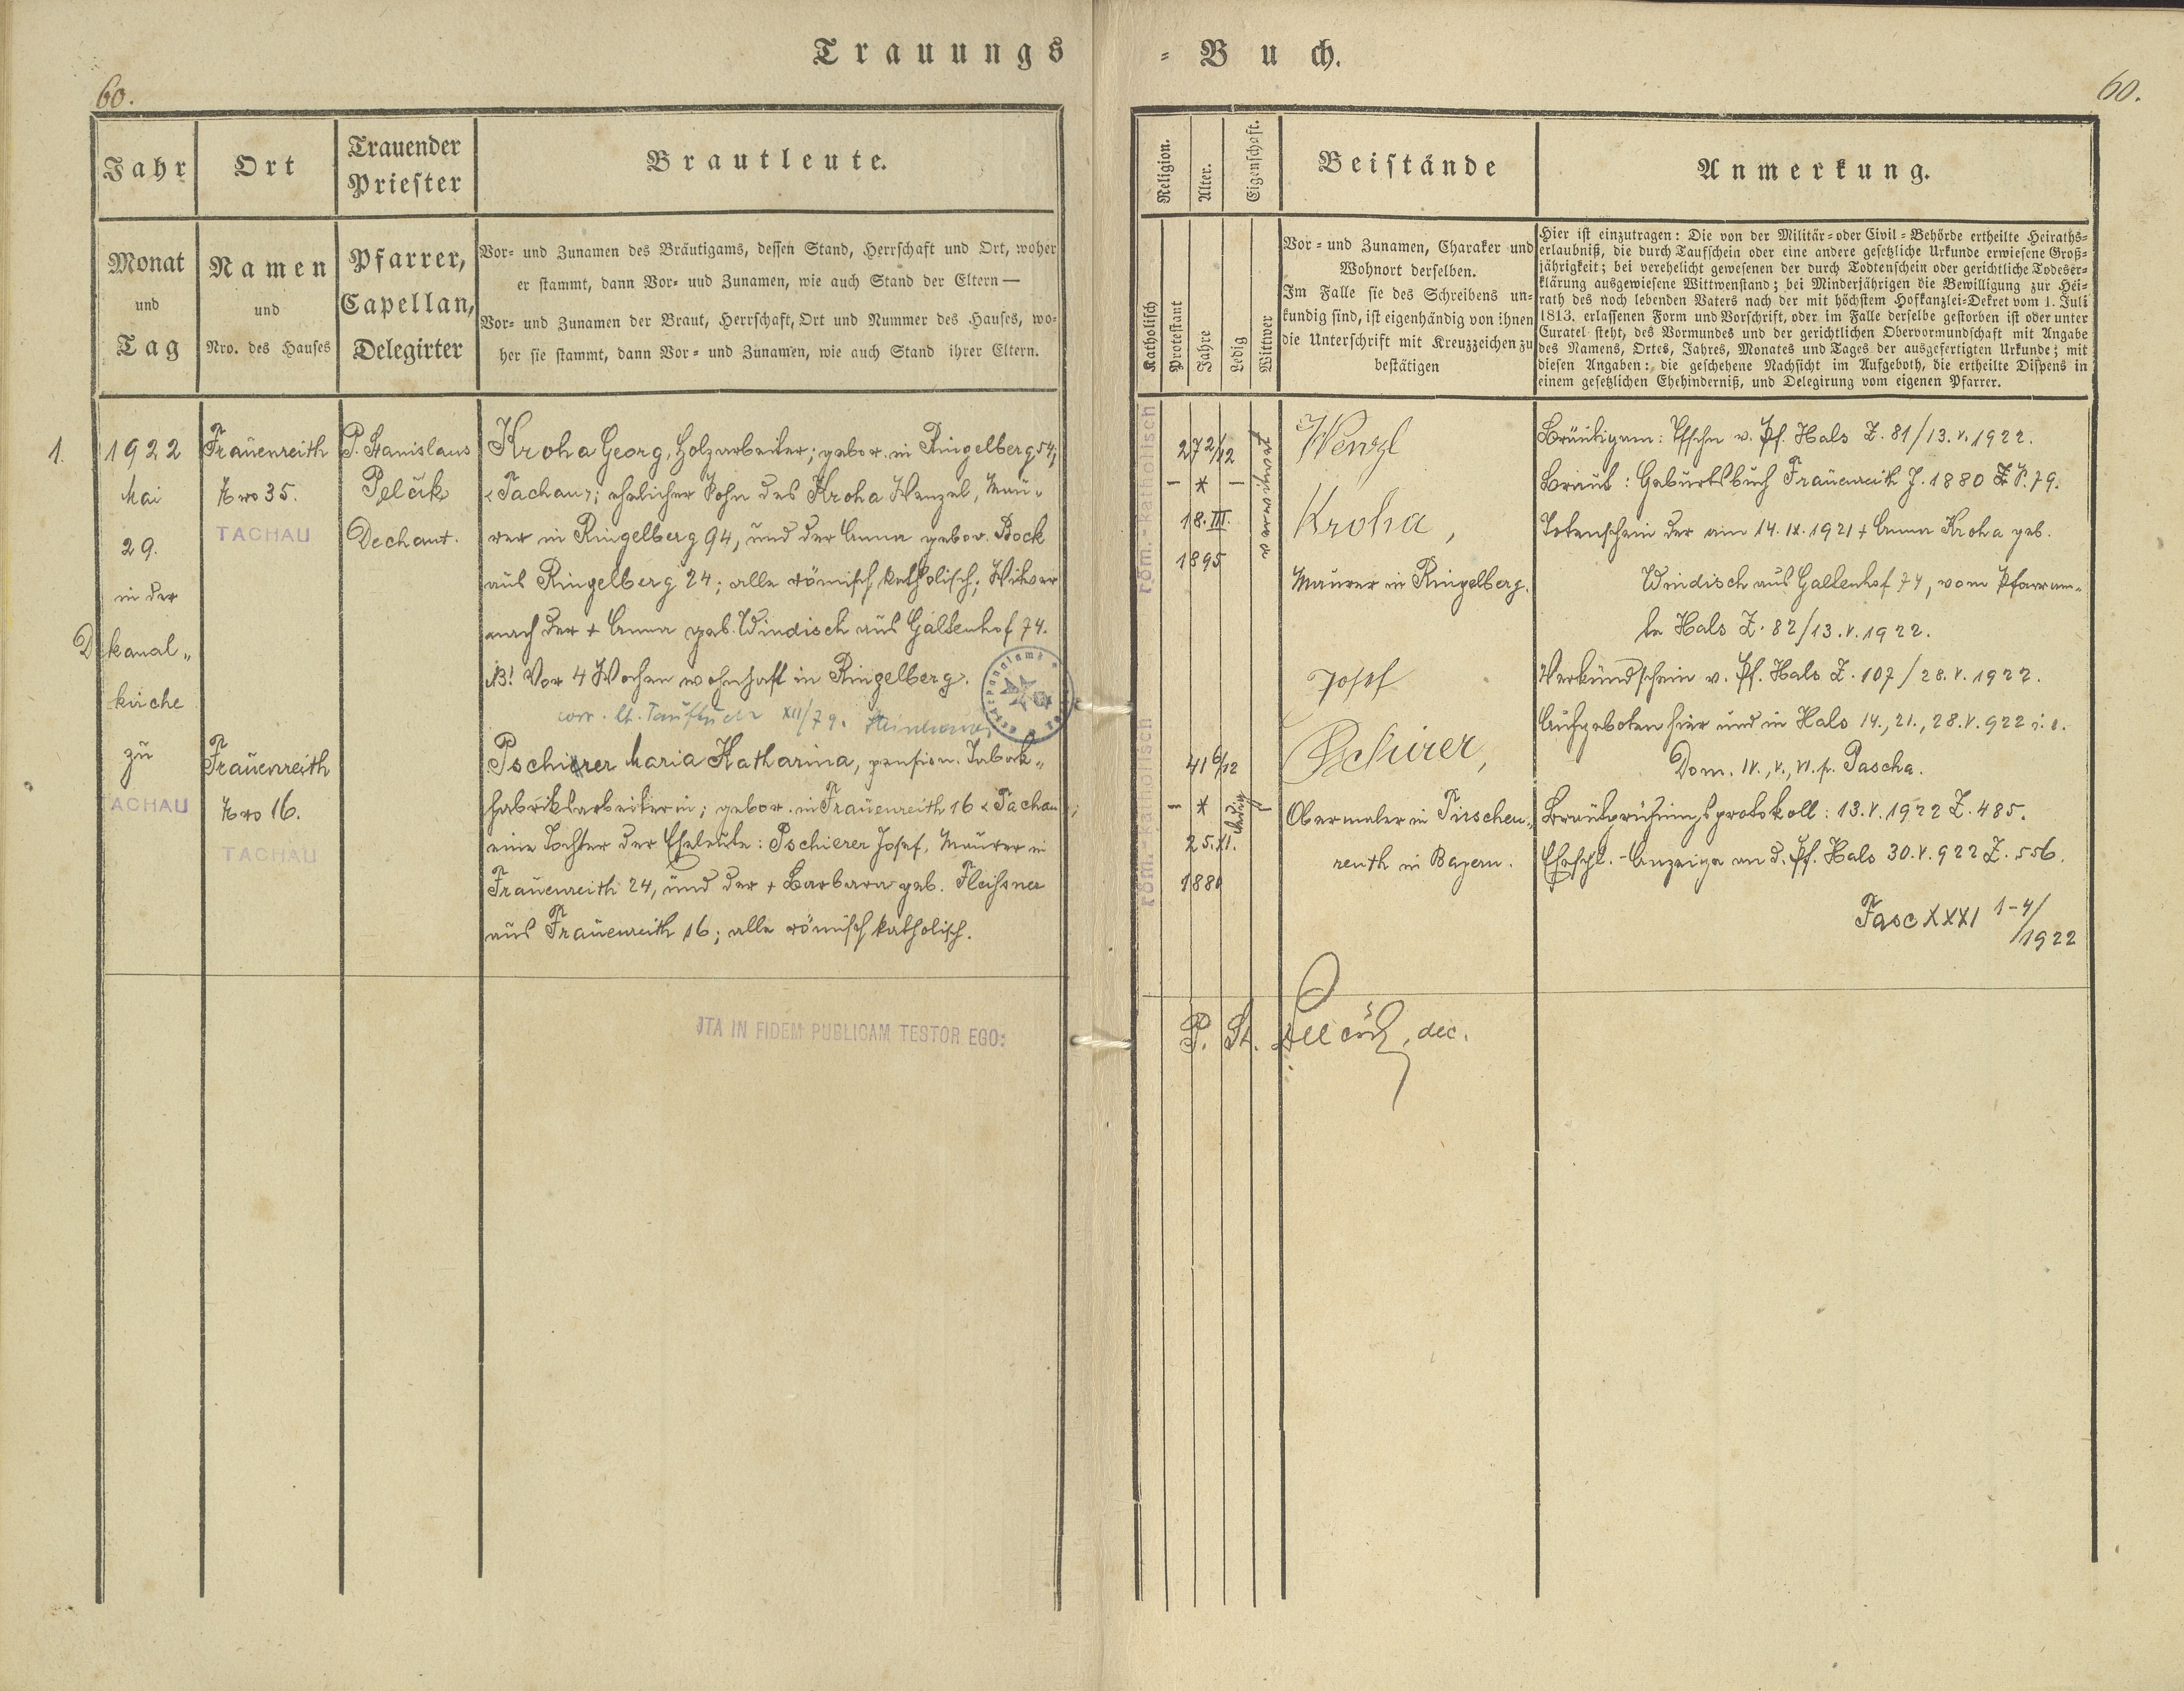 Trauungs-Buch.
60.
60.
Jahr
Ort
Trauender
Priester
Brautleute.
Religion.
Alter.
Eigenschaft.
Beistände
Anmerkung.
Monat
und
Tag
Namen
und
Nro. des Hauses
Pfarrer,
Capellan,
Delegirter
Vor- und Zunamen des Bräutigams, dessen Stand, Herrschaft und Ort, woher
er stammt, dann Vor- und Zunamen, wie auch Stand der Eltern —
Vor- und Zunamen der Braut, Herrschaft, Ort und Nummer des Hauses, wo-
her sie stammt, dann Vor- und Zunamen, wie auch Stand ihrer Eltern.
Katholisch
Protestant
Jahre
Ledig
Wittwer
Vor- und Zunamen, Charakter und
Wohnort derselben.
Im Falle sie des Schreibens un-
kundig sind, ist eigenhändig von ihnen
die Unterschrift mit Kreuzzeichen zu
bestätigen
Hier ist einzutragen: Die von der Militär- oder Civil-Behörde ertheilte Heiraths-
erlaubniß, die durch Taufschein oder eine andere gesetzliche Urkunde erwiesene Groß-
jährigkeit; bei verehelicht gewesenen der durch Todtenschein oder gerichtliche Todeser-
klärung ausgewiesene Wittwenstand; bei Minderjährigen die Bewilligung zur Hei-
rath des noch lebenden Vaters nach der mit höchstem Hofkanzlei-Dekret vom 1. Juli
1813, erlassenen Form und Vorschrift, oder im Falle derselbe gestorben ist oder unter
Curatel steht, des Vormundes und der gerichtlichen Obervormundschaft mit Angabe
des Namens, Ortes, Jahres, Monates und Tages der ausgefertigten Urkunde; mit
diesen Angaben: die geschehene Nachsicht im Aufgeboth, die ertheilte Dispens in
einem gesetzlichen Ehehinderniß, und Delegirung vom eigenen Pfarrer.
1.
1922
Mai
29.
in der
Dekanal-
kirche
zu
TACHAU
Frauenreith
Nro 35.
TACHAU
Frauenreith
Nro 16.
TACHAU
P. Stanislaus
Pelčik
Dechant.
Kroha Georg, Holzarbeiter; gebor. in Ringelberg 54,
<Tachau>; ehelicher Sohn des Kroha Wenzel, Mau-
rer in Ringelberg 94, und der Anna gebor. Bock
aus Ringelberg 24; alle römisch katholisch; Witwer
nach der + Anna geb. Windisch aus Galtenhof 74.
NB! Vor 4 Wochen wohnhaft in Ringelberg.
corr. lt. Taufbuch XII/79.
Pschierer Maria Katharina, pension. Tabak-
fabriksarbeiterin; gebor. in Frauenreith 16 <Tachau>;
eine Tochter der Eheleute: Pschierer Josef, Maurer in
Frauenreith 24, und der + Barbara geb. Fleißner
aus Frauenreith 16; alle römisch katholisch.
JTA IN FIDEM PUBLICAM TESTOR EGO:
röm.-katholisch
27 2/12
- * -
18. III.
1895
verwitwet
röm.-katholisch
41 6/12
- * -
25. XI.
1880
ledig
Wenzl
Kroha,
Maurer in Ringelberg.
Josef
Pschirer,
Obermaler in Tirschen-
reuth in Bayern.
P. St. Pelčik, dec.
Bräutigam: Tfschn v. Pf. Hals Z. 81/13.V.1922.
Braut: Geburtsbuch Frauenreith J. 1880 S. 79.
Totenschein der am 14.IX.1921 + Anna Kroha geb.
Windisch aus Galtenhof 74, vom Pfarram-
te Hals Z. 82/13.V.1922.
Verkündschein v. Pf. Hals Z. 107/28.V.1922.
Aufgeboten hier und in Hals 14., 21., 28.V.922 i. e.
Dom. IV., V., VI. p. Pascha.
Brautprüfungsprotokoll: 13.V.1922 Z. 485.
Eheschl.-Anzeige an d. Pf. Hals 30.V.922 Z. 556.
Fasc XXXI 1-4/
/1922